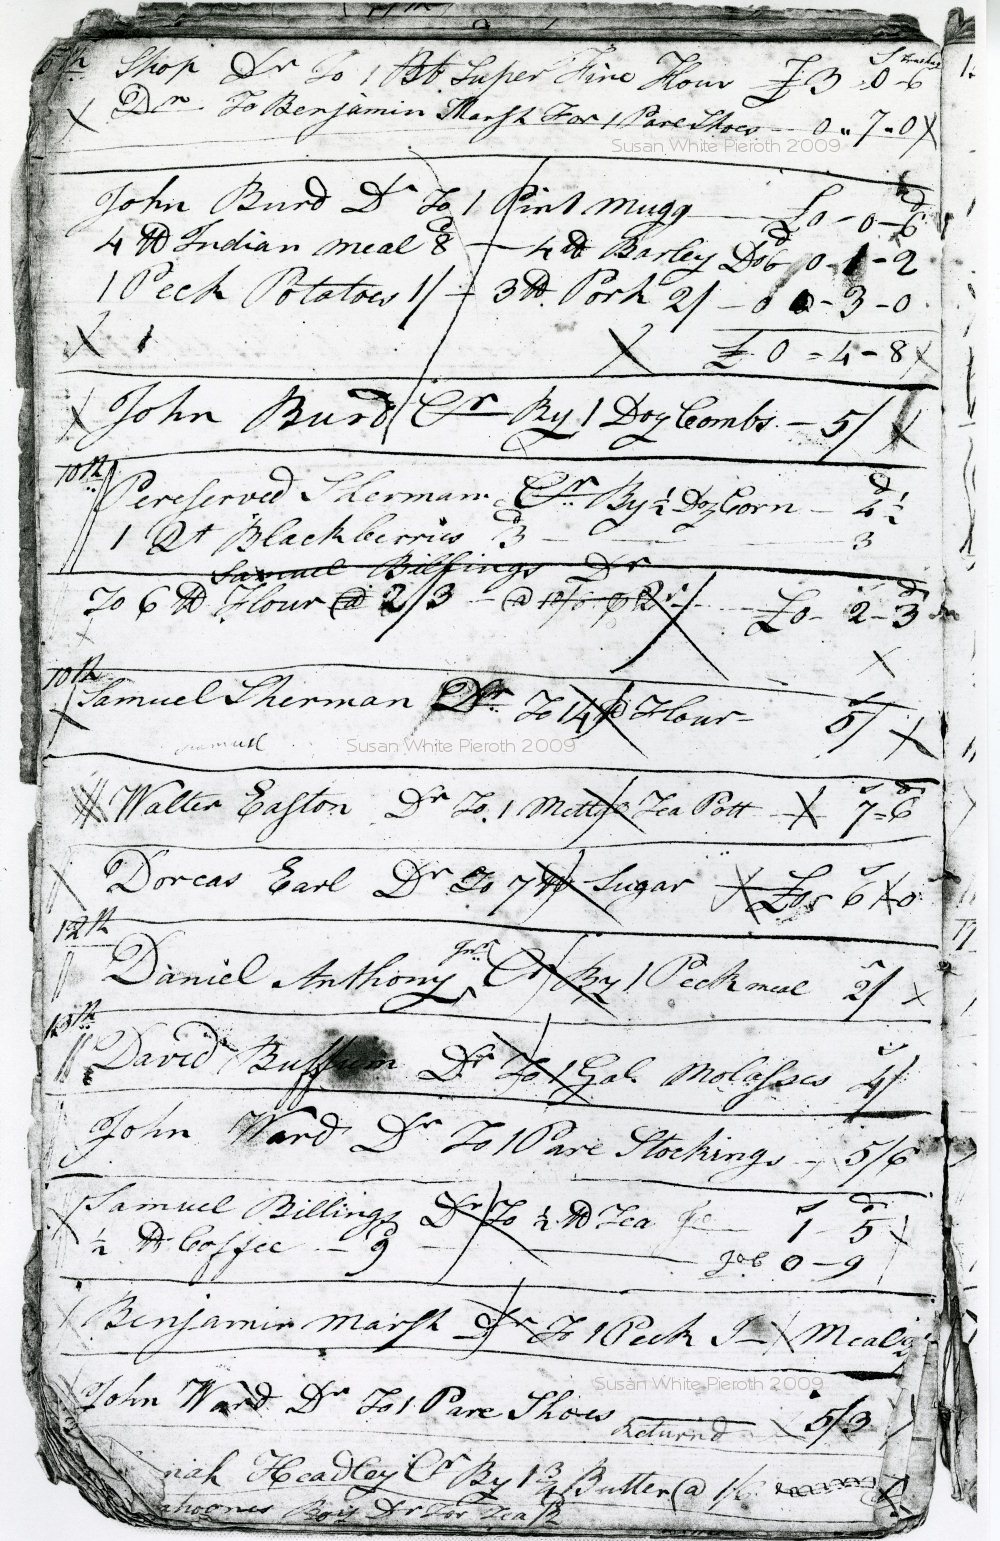 5th Shop Dr To 1 Bb Super Fine Flour £3-0-6
Dr To Benjamin Marsh For 1 Pare Shoes 0"7"0
Susan White Pieroth 2009
John Burd Dr To 1 Pint Mugg £0-0-6
4 lb Indian meal 8 4 lb Barley Do 6 0-1-2
1 Peck Potatoes 1/ 3 lb Pork 2/ 0-3-0
£0-4-8
John Burd Cr By 1 Doz Combs 5/
10th
Pereserved Sherman Cr By ½ Doz Corn 4½
1 Qt Blackberries 3 3
Samuel Billings Dr
To 6 lb Flour @ 2/3 £0-2-3
10th
Samuel Sherman Dr To 14 lb Flour 5/
Samuel
Susan White Pieroth 2009
Walter Easton Dr To 1 Mettle Tea Pott 7=6
Dorcas Earl Dr To 7 lb Sugar £0 6 0
12th
Daniel Anthony Jnr Cr By 1 Peck meal 2/
13th
David Buffum Dr To 1 Gal. Molasses 4/
John Ward Dr To 1 Pare Stockings 5/6
Samuel Billings Dr To ½ lb Tea 1 5
½ lb Coffee 9 0-9
Benjamin Marsh Dr To 1 Peck I Meal
Susan White Pieroth 2009
John Ward Dr To 1 Pare Shoes Returnd 5/3
Headley Cr By 1¾ Butter @
Boy Dr For Tea